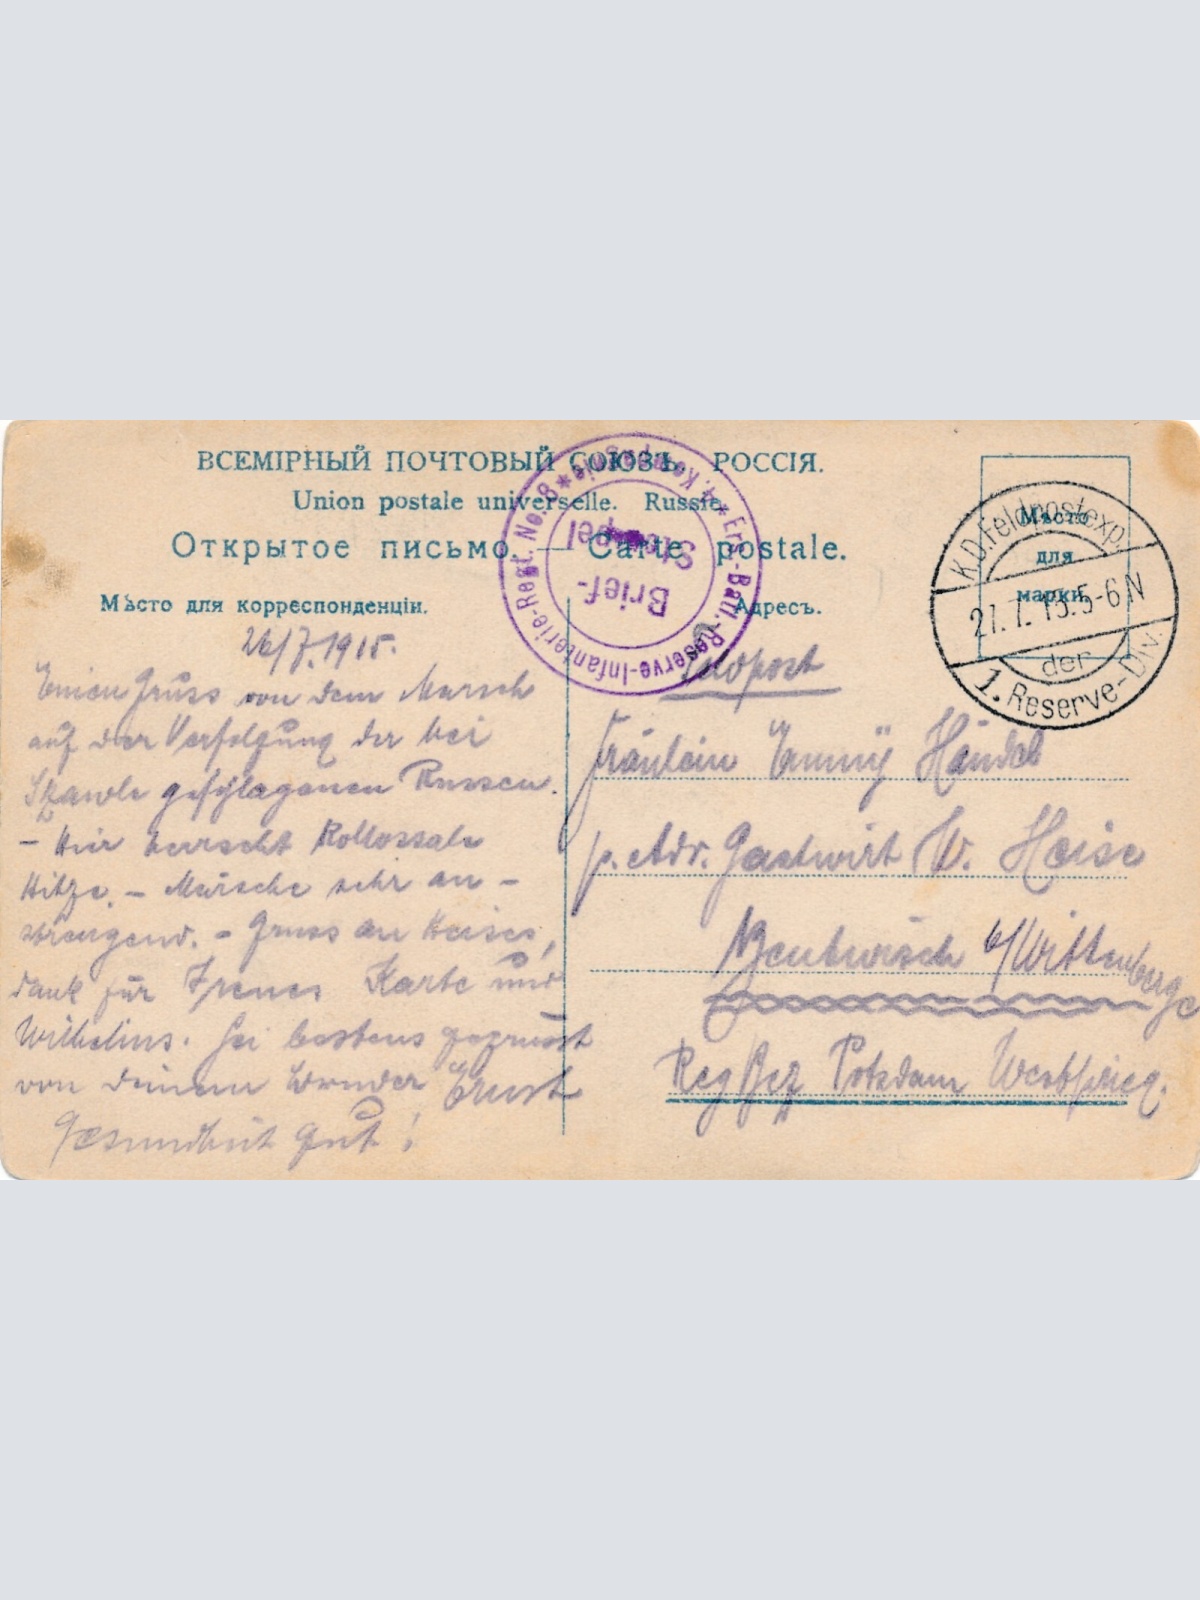 ВСЕМІРНЫЙ ПОЧТОВЫЙ СОЮЗЪ. РОССІЯ.
Union postale universelle. Russie.
Открытое письмо. — Carte postale.
Мѣсто для корреспонденціи.
Адресъ.
Мѣсто
для
марки.
K.D.Feldpostexp.
27.7.15.5-6N
der
1. Reserve-Div.
Ers.-Batl.-Reserve-Infanterie-Regt. No. 8 * 4. Kompagnie *
Brief-
Stempel
26/7.1915.
Einen Gruss von dem Marsch
auf der Verfolgung der bei
geschlagenen Russen.
- Hier herrscht Kollossale
Hitze. - Märsche sehr an-
strengend. - Gruss an Heises,
dank für Irenes Karte und
Wilhelms. Sei bestens gegrüsst
von deinem Bruder Ernst
Gesundheit gut!
Feldpost
Fräulein Emmy Händel
p. Adr. Gastwirt W. Heise
Bentwisch b/Wittenberge
Reg Bez Potsdam Westprieg.